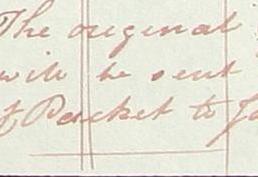 The original
will be sent
of Packet to